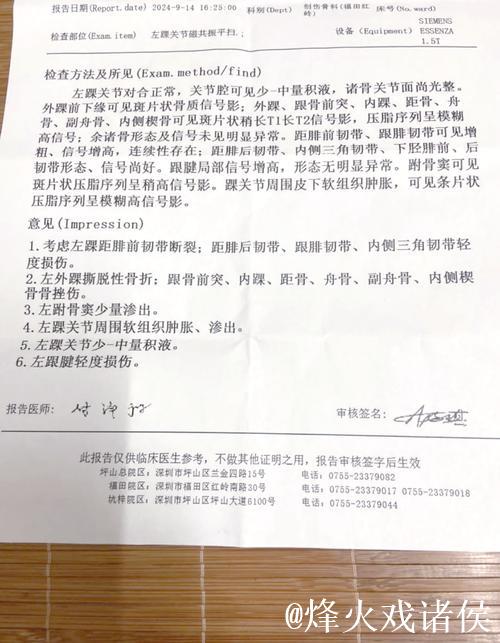 报告日期(Report.date) 2024-9-14 16:25:00 科别(Dept) 创伤骨科(福田红岭) 床号(No.ward)
检查部位(Exam.item) 左踝关节磁共振平扫.; 设备(Equipment) SIEMENS ESSENZA 1.5T
检查方法及所见(Exam.method/find)
左踝关节对合正常,关节腔可见少-中量积液,诸骨关节面尚光整。
外踝前下缘可见斑片状骨质信号影;外踝、跟骨前突、内踝、距骨、舟
骨、副舟骨、内侧楔骨可见斑片状稍长T1长T2信号影,压脂序列呈模糊
高信号;余诸骨形态及信号未见明显异常。距腓前韧带、跟腓韧带可见增
粗、信号增高,连续性存在;距腓后韧带、内侧三角韧带、下胫腓前、后
韧带形态、信号尚好。跟腱局部信号增高,形态无明显异常。跗骨窦可见
斑片状压脂序列呈稍高信号影。踝关节周围皮下软组织肿胀,可见条片状
压脂序列呈模糊高信号影。
意见(Impression)
1.考虑左踝距腓前韧带断裂;距腓后韧带、跟腓韧带、内侧三角韧带轻
度损伤。
2.左外踝撕脱性骨折;跟骨前突、内踝、距骨、舟骨、副舟骨、内侧楔
骨骨挫伤。
3.左跗骨窦少量渗出。
4.左踝关节周围软组织肿胀、渗出。
5.左踝关节少-中量积液。
6.左跟腱轻度损伤。
报告医师: 审核签名:
此报告仅供临床医生参考,不做其他证明之用,报告审核签字后生效
坪山总院区:深圳市坪山区兰金四路15号 电话:0755-23379082
福田院区:深圳市福田区红岭南路30号 电话:0755-23379017 0755-23379018
坑梓院区:深圳市坪山区坪山大道6100号 电话:0755-23379044
@烽火戏诸侯